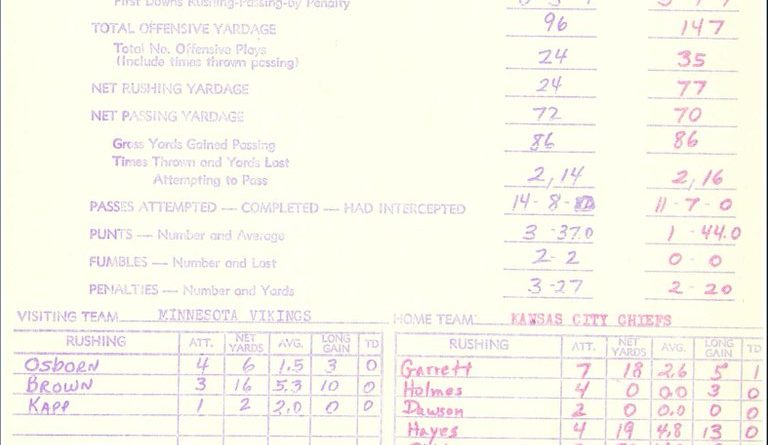 First Downs Rushing-Passing-by Penalty
TOTAL OFFENSIVE YARDAGE 96 147
Total No. Offensive Plays
(Include times thrown passing) 24 35
NET RUSHING YARDAGE 24 77
NET PASSING YARDAGE 72 70
Gross Yards Gained Passing 86 86
Times Thrown and Yards Lost
Attempting to Pass 2, 14 2, 16
PASSES ATTEMPTED — COMPLETED — HAD INTERCEPTED 14-8- 11-7-0
PUNTS — Number and Average 3 -37.0 1 -44.0
FUMBLES — Number and Lost 2-2 0-0
PENALTIES — Number and Yards 3-27 2-20
VISITING TEAM: MINNESOTA VIKINGS HOME TEAM: KANSAS CITY CHIEFS
RUSHING ATT. NET YARDS AVG. LONG GAIN TD RUSHING ATT. NET YARDS AVG. LONG GAIN TD
OSBORN 4 6 1.5 3 0 Garrett 7 18 2.6 5 1
BROWN 3 16 5.3 10 0 Holmes 4 0 0.0 3 0
KAPP 1 2 2.0 0 0 Dawson 2 0 0.0 0 0
Hayes 4 19 4.8 13 0